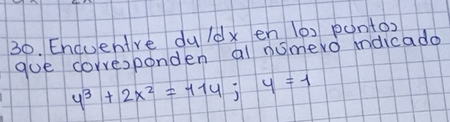 30. Encuentre dy/dx en los puntos
que corresponden al número indicado
y³ + 2x² = 11y ; y = 1